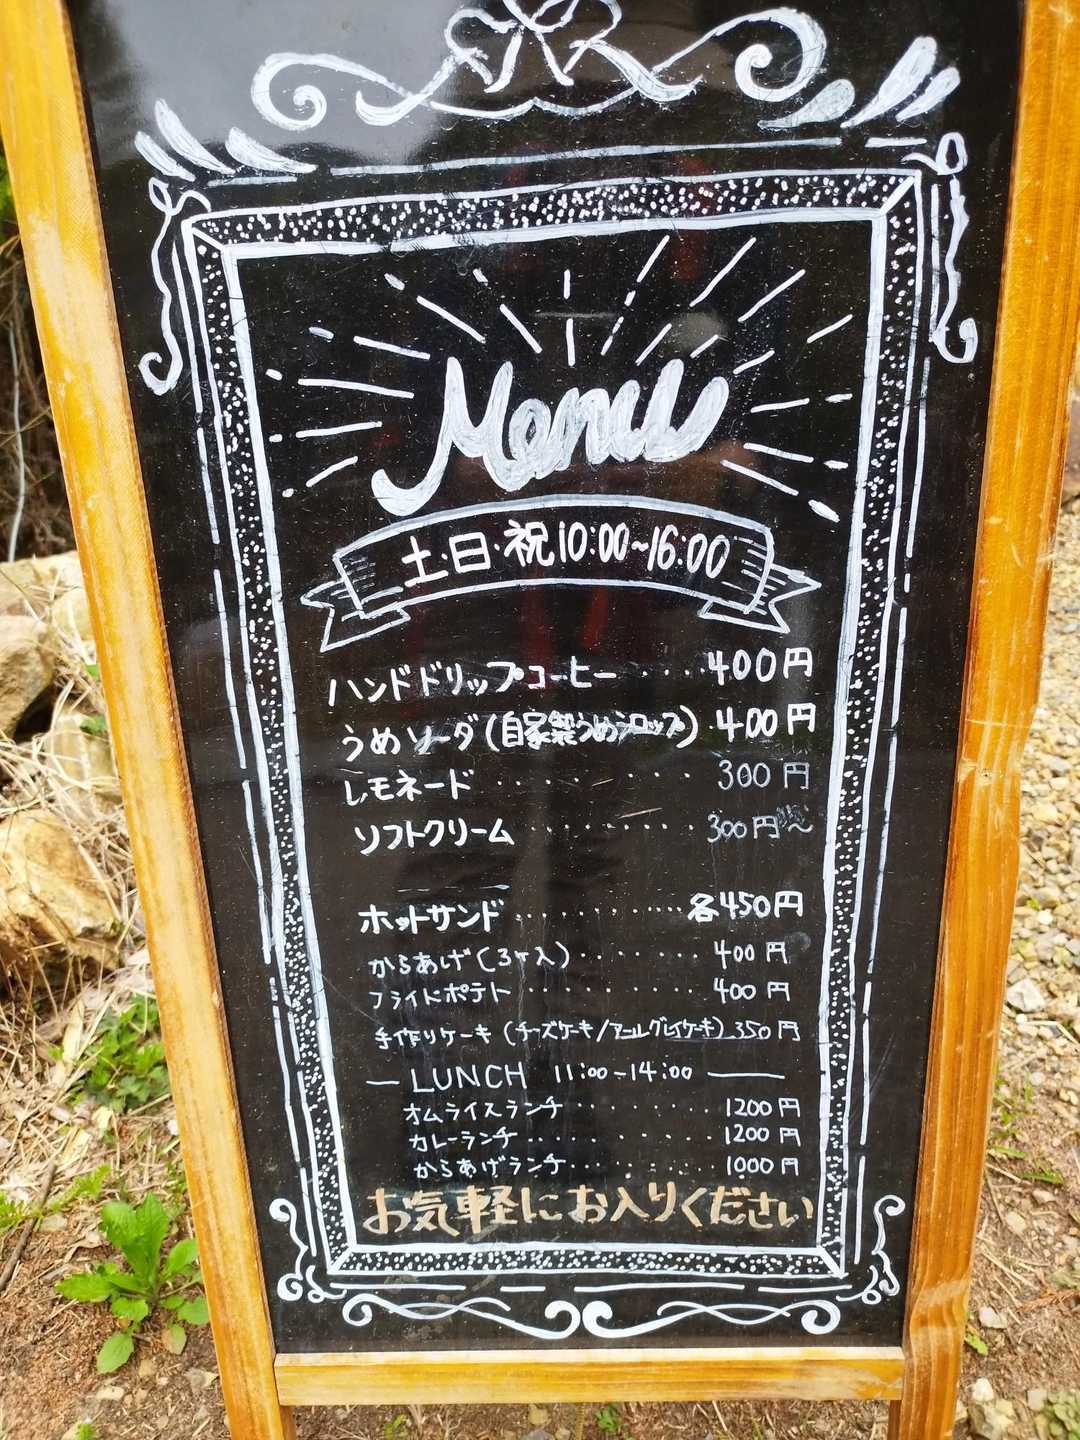 Menu
土・日・祝10:00~16:00
ハンドドリップコーヒー ····400円
うめソーダ(自家製うめシロップ)·400円
レモネード ········300円
ソフトクリーム ·········300円~
ホットサンド ··········各450円
からあげ(3ヶ入) ········400円
フライドポテト ·········400円
手作りケーキ (チーズケーキ/アールグレイケーキ) 350円
— LUNCH 11:00~14:00 —
オムライスランチ ·······1200円
カレーランチ ·········1200円
からあげランチ ·······1000円
お気軽にお入りください